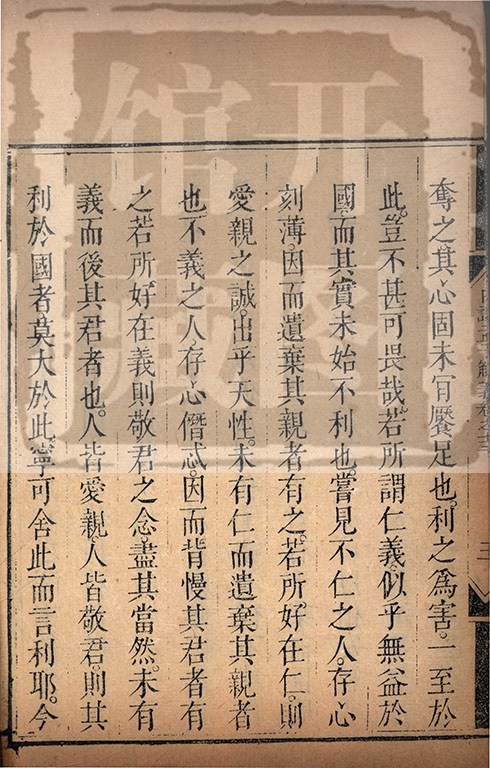 奪之其心固未肎饜足也。利之爲害。一至於
此。豈不甚可畏哉。若所謂仁義。似乎無益於
國。而其實未始不利也。嘗見不仁之人。存心
刻薄。因而遺棄其親者有之。若所好在仁。則
愛親之誠。出乎天性。未有仁而遺棄其親者
也。不義之人。存心僭忒。因而背慢其君者有
之。若所好在義。則敬君之念。盡其當然。未有
義而後其君者也。人皆愛親。人皆敬君。則其
利於國者。莫大於此。寧可舍此而言利耶。今
日講四書解義卷之十三
三